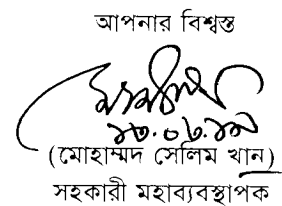 আপনার বিশ্বস্ত
১৩.০৮.১৯
(মোহাম্মদ সেলিম খান)
সহকারী মহাব্যবস্থাপক